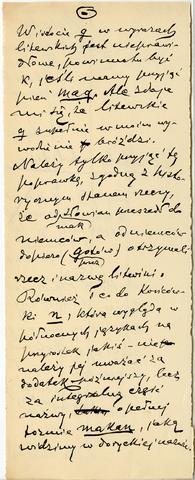 6
Wszakże g w wyrazach
litewskich jest nieprawi-
dłowe, powinno tu być
k, jeśli mamy przyjąć
pień mag. Ale zdaje
mi się, że litewskie
g zupełnie w moim wy-
wodzie nie bróździ.
Należy tylko przyjąć tę
poprawkę, zgodną z histo-
rycznym stanem rzeczy,
że od Słowian przeszedł do
mak
niemców, a od niemców
dopiero (gotów) otrzymali
rzecz i nazwę litwini.
Również i co do końców-
ki n, która wygląda w
północnych językach na
przyrostek jakiś – nie
należy jej uważać za
dodatek późniejszy, lecz
za integralną część
nazwy, o pełnej
formie makan, jaką
widzimy w doryckiej nazwie.